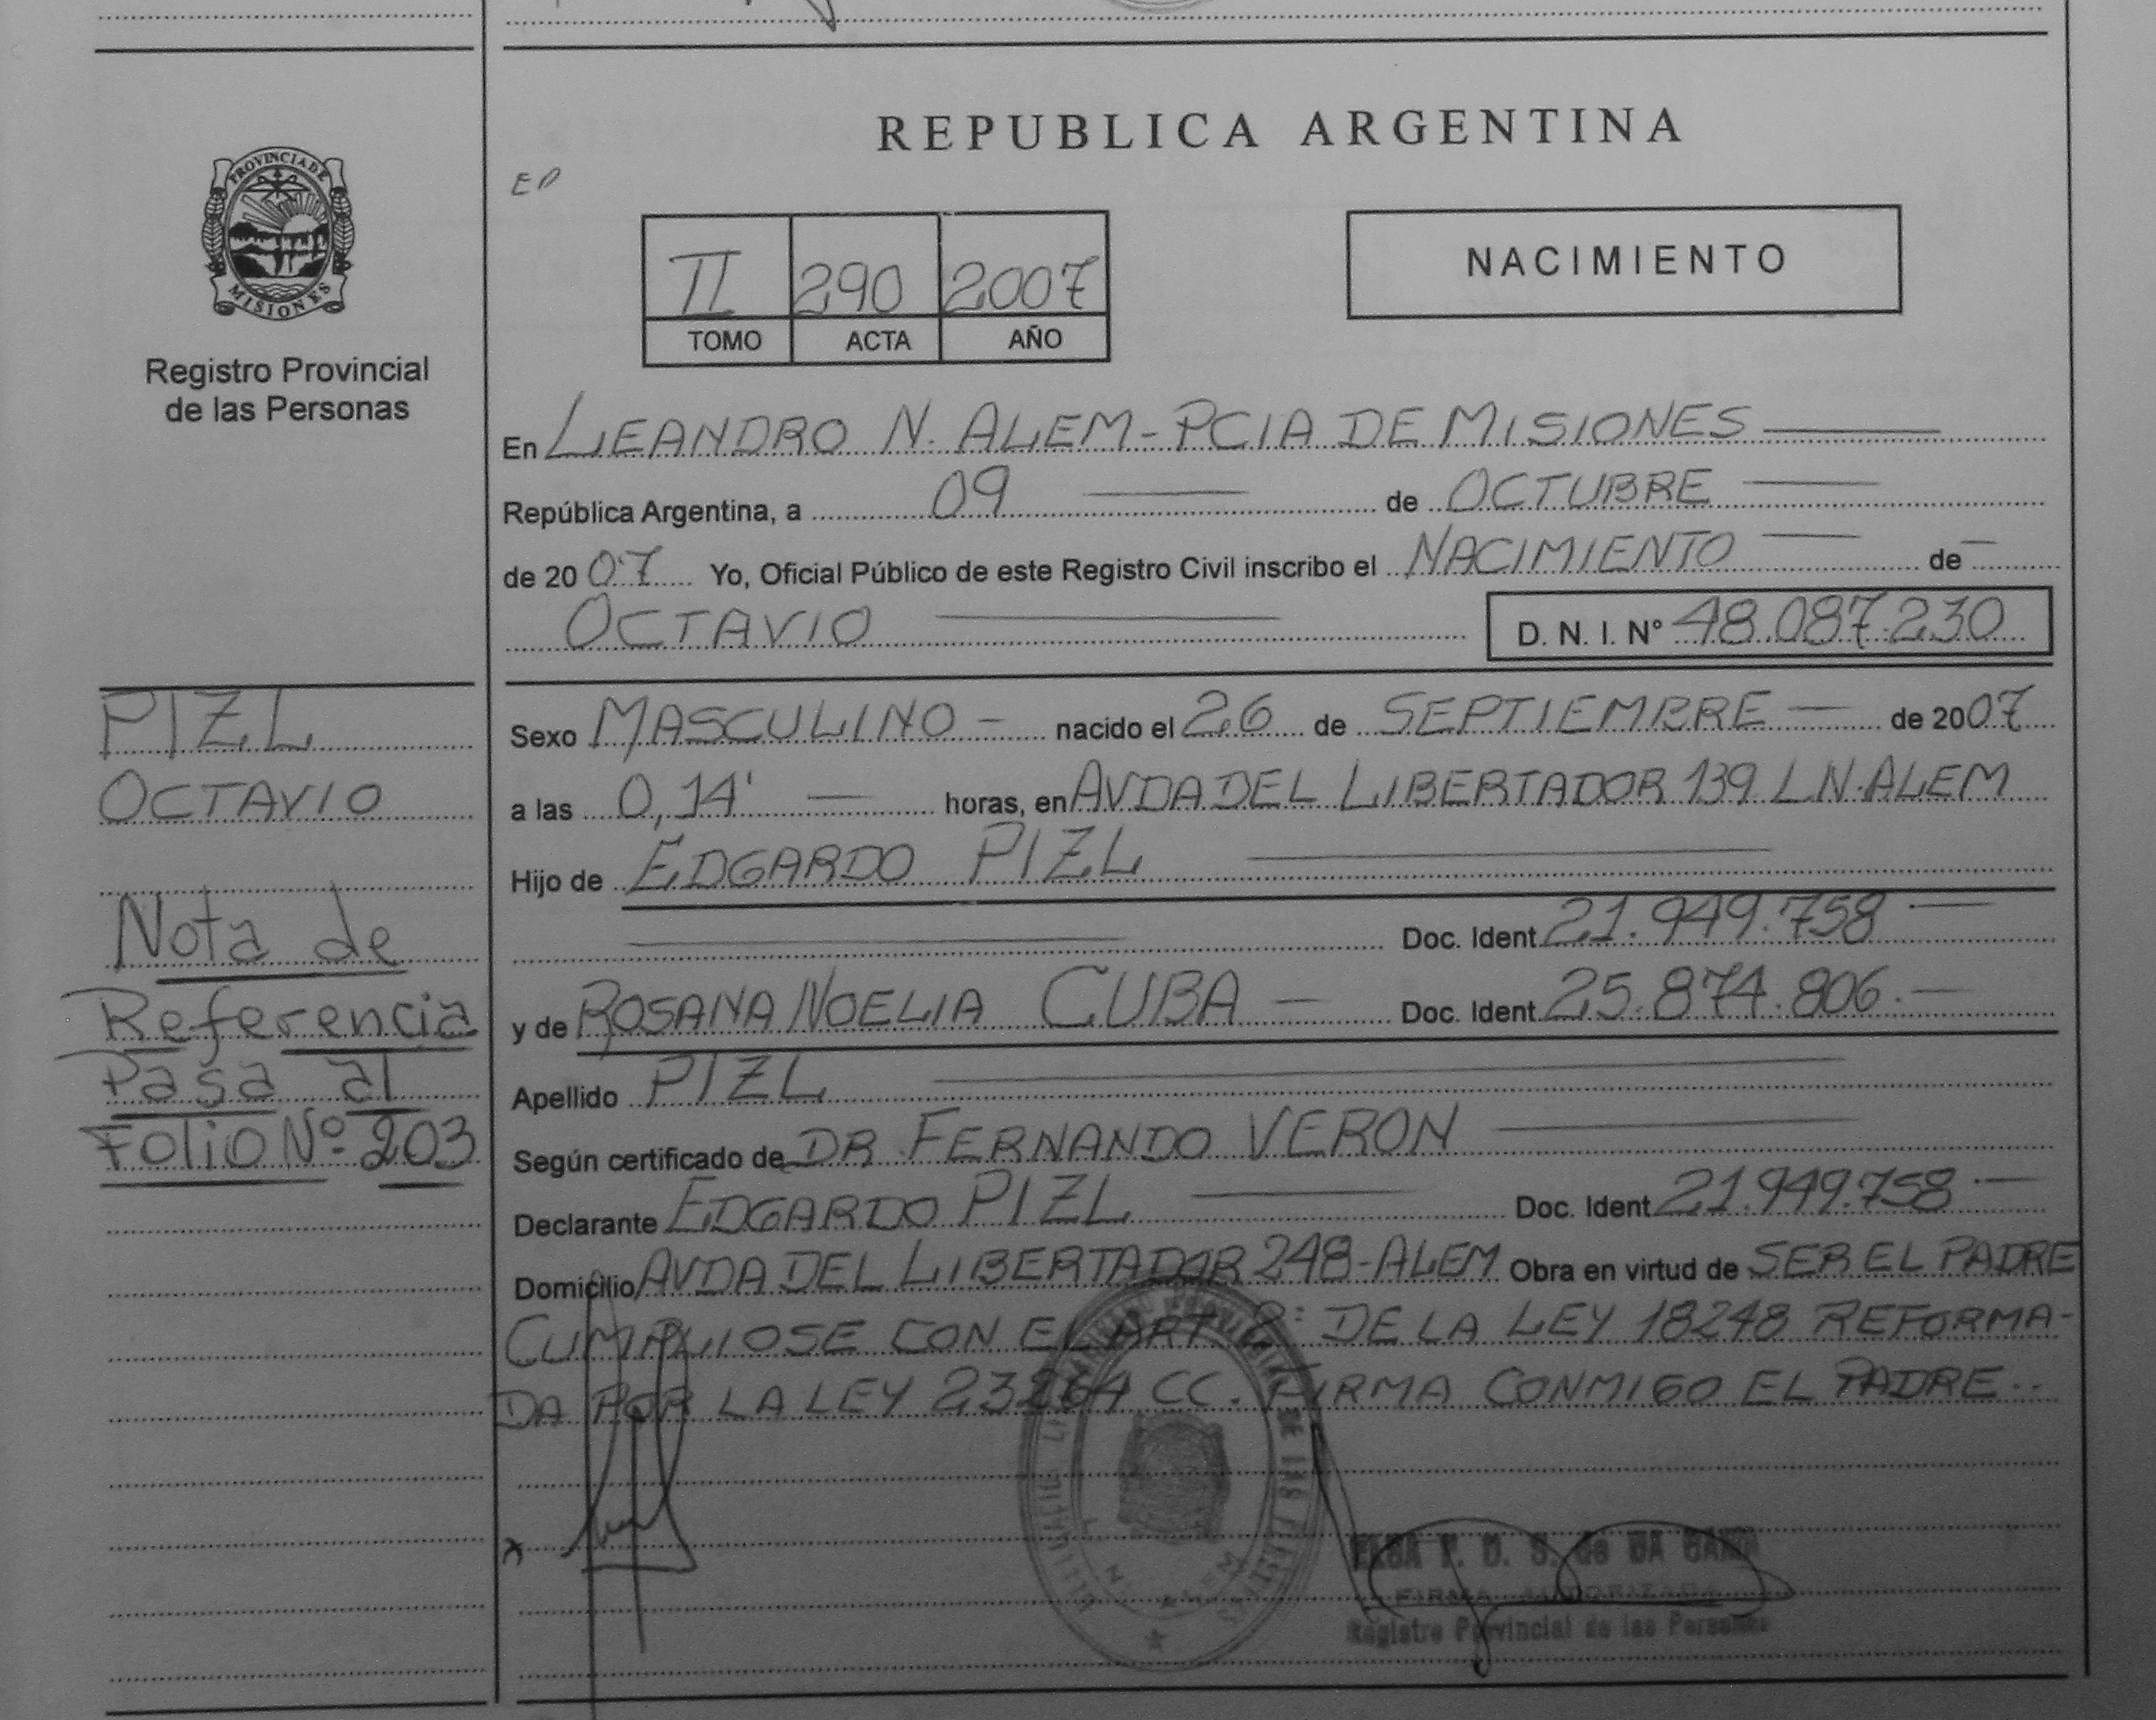 REPUBLICA ARGENTINA
PROVINCIA DE
MISIONES
Registro Provincial
de las Personas
NACIMIENTO
II 290 2007
TOMO ACTA AÑO
En LEANDRO N. ALEM - PCIA DE MISIONES
República Argentina, a 09 de OCTUBRE
de 2007 Yo, Oficial Público de este Registro Civil inscribo el NACIMIENTO de
OCTAVIO D. N. I. Nº 48.087.230
PIZL
OCTAVIO
Nota de
Referencia
Pasa al
Folio Nº 203
Sexo MASCULINO - nacido el 26 de SEPTIEMBRE de 2007
a las 0,14' horas, en AVDA DEL LIBERTADOR 139 L N. ALEM
Hijo de EDGARDO PIZL
Doc. Ident. 21.949.758
y de ROSANA NOELIA CUBA - Doc. Ident. 25.874.806.-
Apellido PIZL
Según certificado de DR FERNANDO VERON
Declarante EDGARDO PIZL Doc. Ident. 21.949.758
Domicilio AVDA DEL LIBERTADOR 248 - ALEM Obra en virtud de SER EL PADRE
CUMPLIOSE CON EL ART 2º DE LA LEY 18248 REFORMA-
DA POR LA LEY 23264 CC. FIRMA CONMIGO EL PADRE..
FIRMA AUTORIZADA
Registro Provincial de las Personas